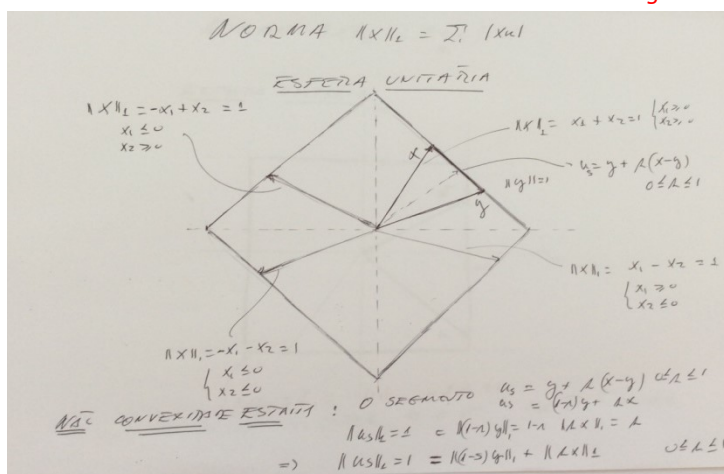 NORMA ‖x‖₁ = Σ |xₙ|
ESFERA UNITÁRIA
‖x‖₁ = -x₁ + x₂ = 1
x₁ ≤ 0
x₂ ≥ 0
‖x‖₁ = x₁ + x₂ = 1 { x₁ ≥ 0
x₂ ≥ 0
x
uₛ = y + s(x-y)
0 ≤ s ≤ 1
‖y‖ = 1
y
‖x‖₁ = x₁ - x₂ = 1
{ x₁ ≥ 0
x₂ ≤ 0
‖x‖₁ = -x₁ - x₂ = 1
{ x₁ ≤ 0
x₂ ≤ 0
NÃO CONVEXIDADE ESTRITA : O SEGMENTO uₛ = y + s(x-y) 0 ≤ s ≤ 1
uₛ = (1-s)y + sx
‖uₛ‖₁ = 1 = ‖(1-s)y‖₁ = 1-s ‖sx‖₁ = s
=> ‖uₛ‖₁ = 1 = ‖(1-s)y‖₁ + ‖sx‖₁ 0 ≤ s ≤ 1